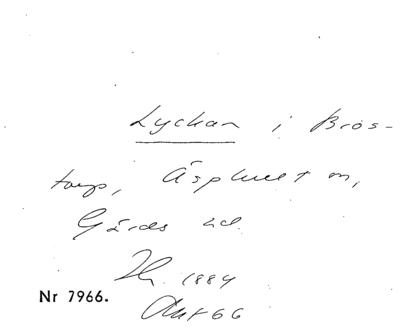 Lyckan i Brös-
torp, Äsphult sn,
Gärds hd.
1884
Nr 7966.
Akt 66